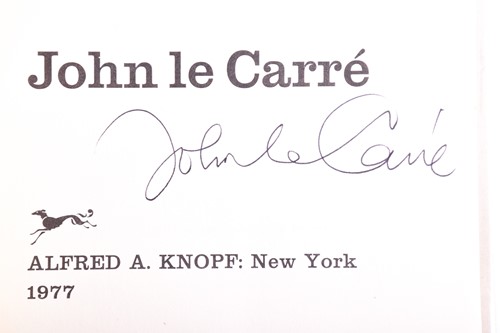 John le Carré
John le Carré
ALFRED A. KNOPF: New York
1977